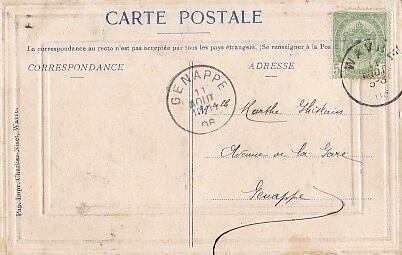 CARTE POSTALE
La correspondance au recto n'est pas acceptée par tous les pays étrangers. (Se renseigner à la Pos
CORRESPONDANCE
ADRESSE
GENAPPE
11
AOUT
08
WAVRE
AOUT
08
Marthe Ghislain
Avenue de la Gare
Genappe
Pap. Impr. Charlier-Niset, Wavre.